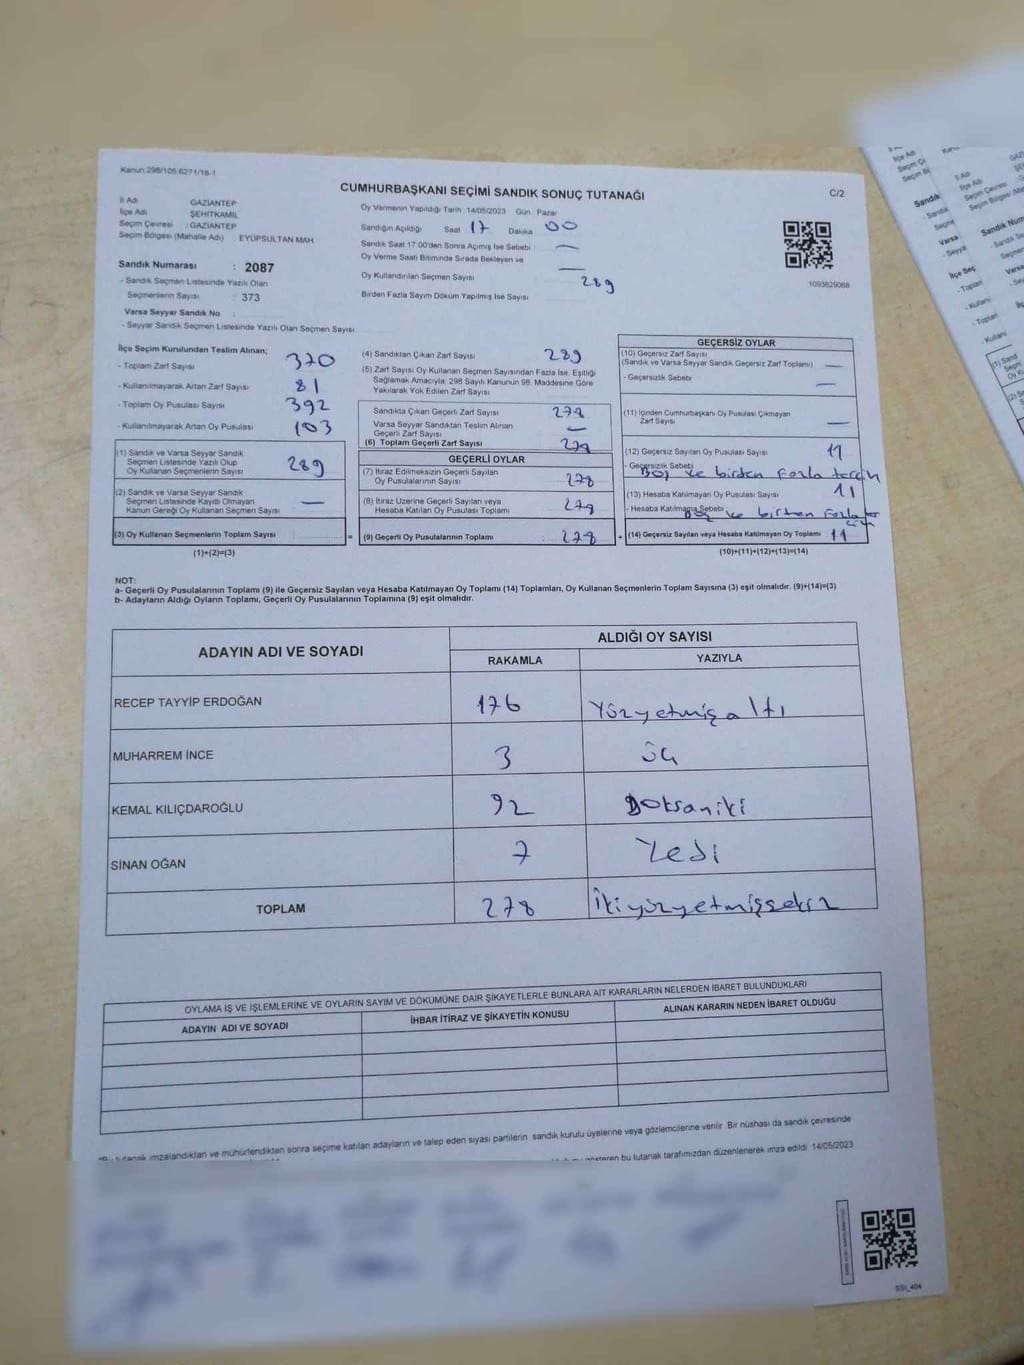 Kanun 298/105,6271/18-1
CUMHURBAŞKANI SEÇİMİ SANDIK SONUÇ TUTANAĞI
C/2
İl Adı GAZİANTEP
İlçe Adı ŞEHİTKAMİL
Seçim Çevresi : GAZİANTEP
Seçim Bölgesi (Mahalle Adı) : EYÜPSULTAN MAH
Sandık Numarası : 2087
- Sandık Seçmen Listesinde Yazılı Olan
Seçmenlerin Sayısı : 373
Varsa Seyyar Sandık No :
- Seyyar Sandık Seçmen Listesinde Yazılı Olan Seçmen Sayısı
Oy Vermenin Yapıldığı Tarih 14/05/2023 Gün Pazar
Sandığın Açıldığı Saat 17 Dakika 00
Sandık Saat 17:00'den Sonra Açmış İse Sebebi —
Oy Verme Saati Bitiminde Sırada Bekleyen ve —
Oy Kullandırılan Seçmen Sayısı 289
Birden Fazla Sayım Döküm Yapılmış İse Sayısı
1093629068
İlçe Seçim Kurulundan Teslim Alınan;
- Toplam Zarf Sayısı 370
- Kullanılmayarak Artan Zarf Sayısı 81
- Toplam Oy Pusulası Sayısı 392
- Kullanılmayarak Artan Oy Pusulası 103
(1) Sandık ve Varsa Seyyar Sandık
Seçmen Listesinde Yazılı Olup
Oy Kullanan Seçmenlerin Sayısı 289
(2) Sandık ve Varsa Seyyar Sandık
Seçmen Listesinde Kayıtlı Olmayan
Kanun Gereği Oy Kullanan Seçmen Sayısı —
(3) Oy Kullanan Seçmenlerin Toplam Sayısı =
(1)+(2)=(3)
(4) Sandıktan Çıkan Zarf Sayısı 289
(5) Zarf Sayısı Oy Kullanan Seçmen Sayısından Fazla İse, Eşitliği
Sağlamak Amacıyla; 298 Sayılı Kanunun 98. Maddesine Göre
Yakılarak Yok Edilen Zarf Sayısı
Sandıkta Çıkan Geçerli Zarf Sayısı 278
Varsa Seyyar Sandıktan Teslim Alınan
Geçerli Zarf Sayısı —
(6) Toplam Geçerli Zarf Sayısı 278
GEÇERLİ OYLAR
(7) İtiraz Edilmeksizin Geçerli Sayılan
Oy Pusulalarının Sayısı 278
(8) İtiraz Üzerine Geçerli Sayılan veya
Hesaba Katılan Oy Pusulası Toplamı 278
(9) Geçerli Oy Pusulalarının Toplamı 278 +
GEÇERSİZ OYLAR
(10) Geçersiz Zarf Sayısı
(Sandık ve Varsa Seyyar Sandık Geçersiz Zarf Toplamı) —
- Geçersizlik Sebebi —
(11) İçinden Cumhurbaşkanı Oy Pusulası Çıkmayan
Zarf Sayısı —
(12) Geçersiz Sayılan Oy Pusulası Sayısı 11
- Geçersizlik Sebebi Boş ve birden fazla tercih
(13) Hesaba Katılmayan Oy Pusulası Sayısı 11
- Hesaba Katılmama Sebebi Boş ve birden fazla ter
cih
(14) Geçersiz Sayılan veya Hesaba Katılmayan Oy Toplamı 11
(10)+(11)+(12)+(13)=(14)
NOT:
a- Geçerli Oy Pusulalarının Toplamı (9) ile Geçersiz Sayılan veya Hesaba Katılmayan Oy Toplamı (14) Toplamları, Oy Kullanan Seçmenlerin Toplam Sayısına (3) eşit olmalıdır. (9)+(14)=(3)
b- Adayların Aldığı Oyların Toplamı, Geçerli Oy Pusulalarının Toplamına (9) eşit olmalıdır.
ADAYIN ADI VE SOYADI ALDIĞI OY SAYISI
RAKAMLA YAZIYLA
RECEP TAYYİP ERDOĞAN 176 Yüzyetmişaltı
MUHARREM İNCE 3 üç
KEMAL KILIÇDAROĞLU 92 Doksaniki
SİNAN OĞAN 7 Yedi
TOPLAM 278 İkiyüzyetmişsekiz
OYLAMA İŞ VE İŞLEMLERİNE VE OYLARIN SAYIM VE DÖKÜMÜNE DAİR ŞİKAYETLERLE BUNLARA AİT KARARLARIN NELERDEN İBARET BULUNDUKLARI
ADAYIN ADI VE SOYADI İHBAR İTİRAZ VE ŞİKAYETİN KONUSU ALINAN KARARIN NEDEN İBARET OLDUĞU
*Bu tutanak imzalandıktan ve mühürlendikten sonra seçime katılan adayların ve talep eden siyasi partilerin sandık kurulu üyelerine veya gözlemcilerine verilir. Bir nüshası da sandık çevresinde
gösteren bu tutanak tarafımızdan düzenlenerek imza edildi. 14/05/2023
SSI_404